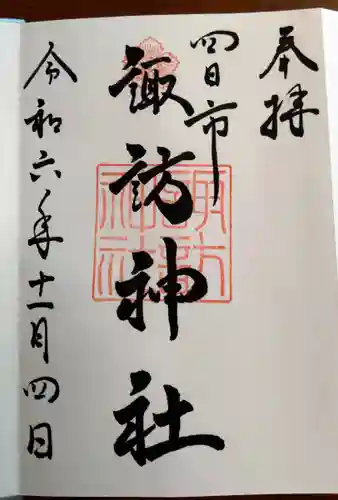 奉拝
四日市
諏訪神社
諏訪神社
令和六年十一月四日